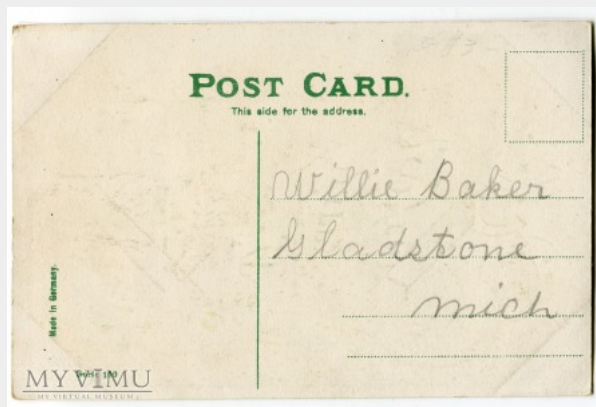 POST CARD.
This side for the address.
Willie Baker
Gladstone
Mich
Made in Germany.
MYVIMU
MY VIRTUAL MUSEUM